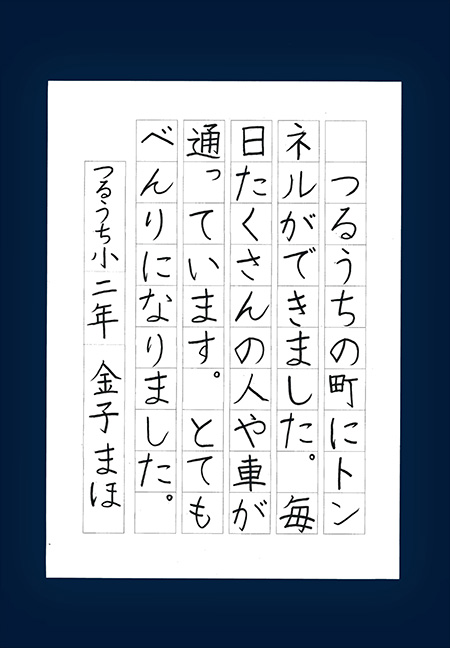 つるうちの町にトン
ネルができました。毎
日たくさんの人や車が
通っています。とても
べんりになりました。
つるうち小二年 金子まほ